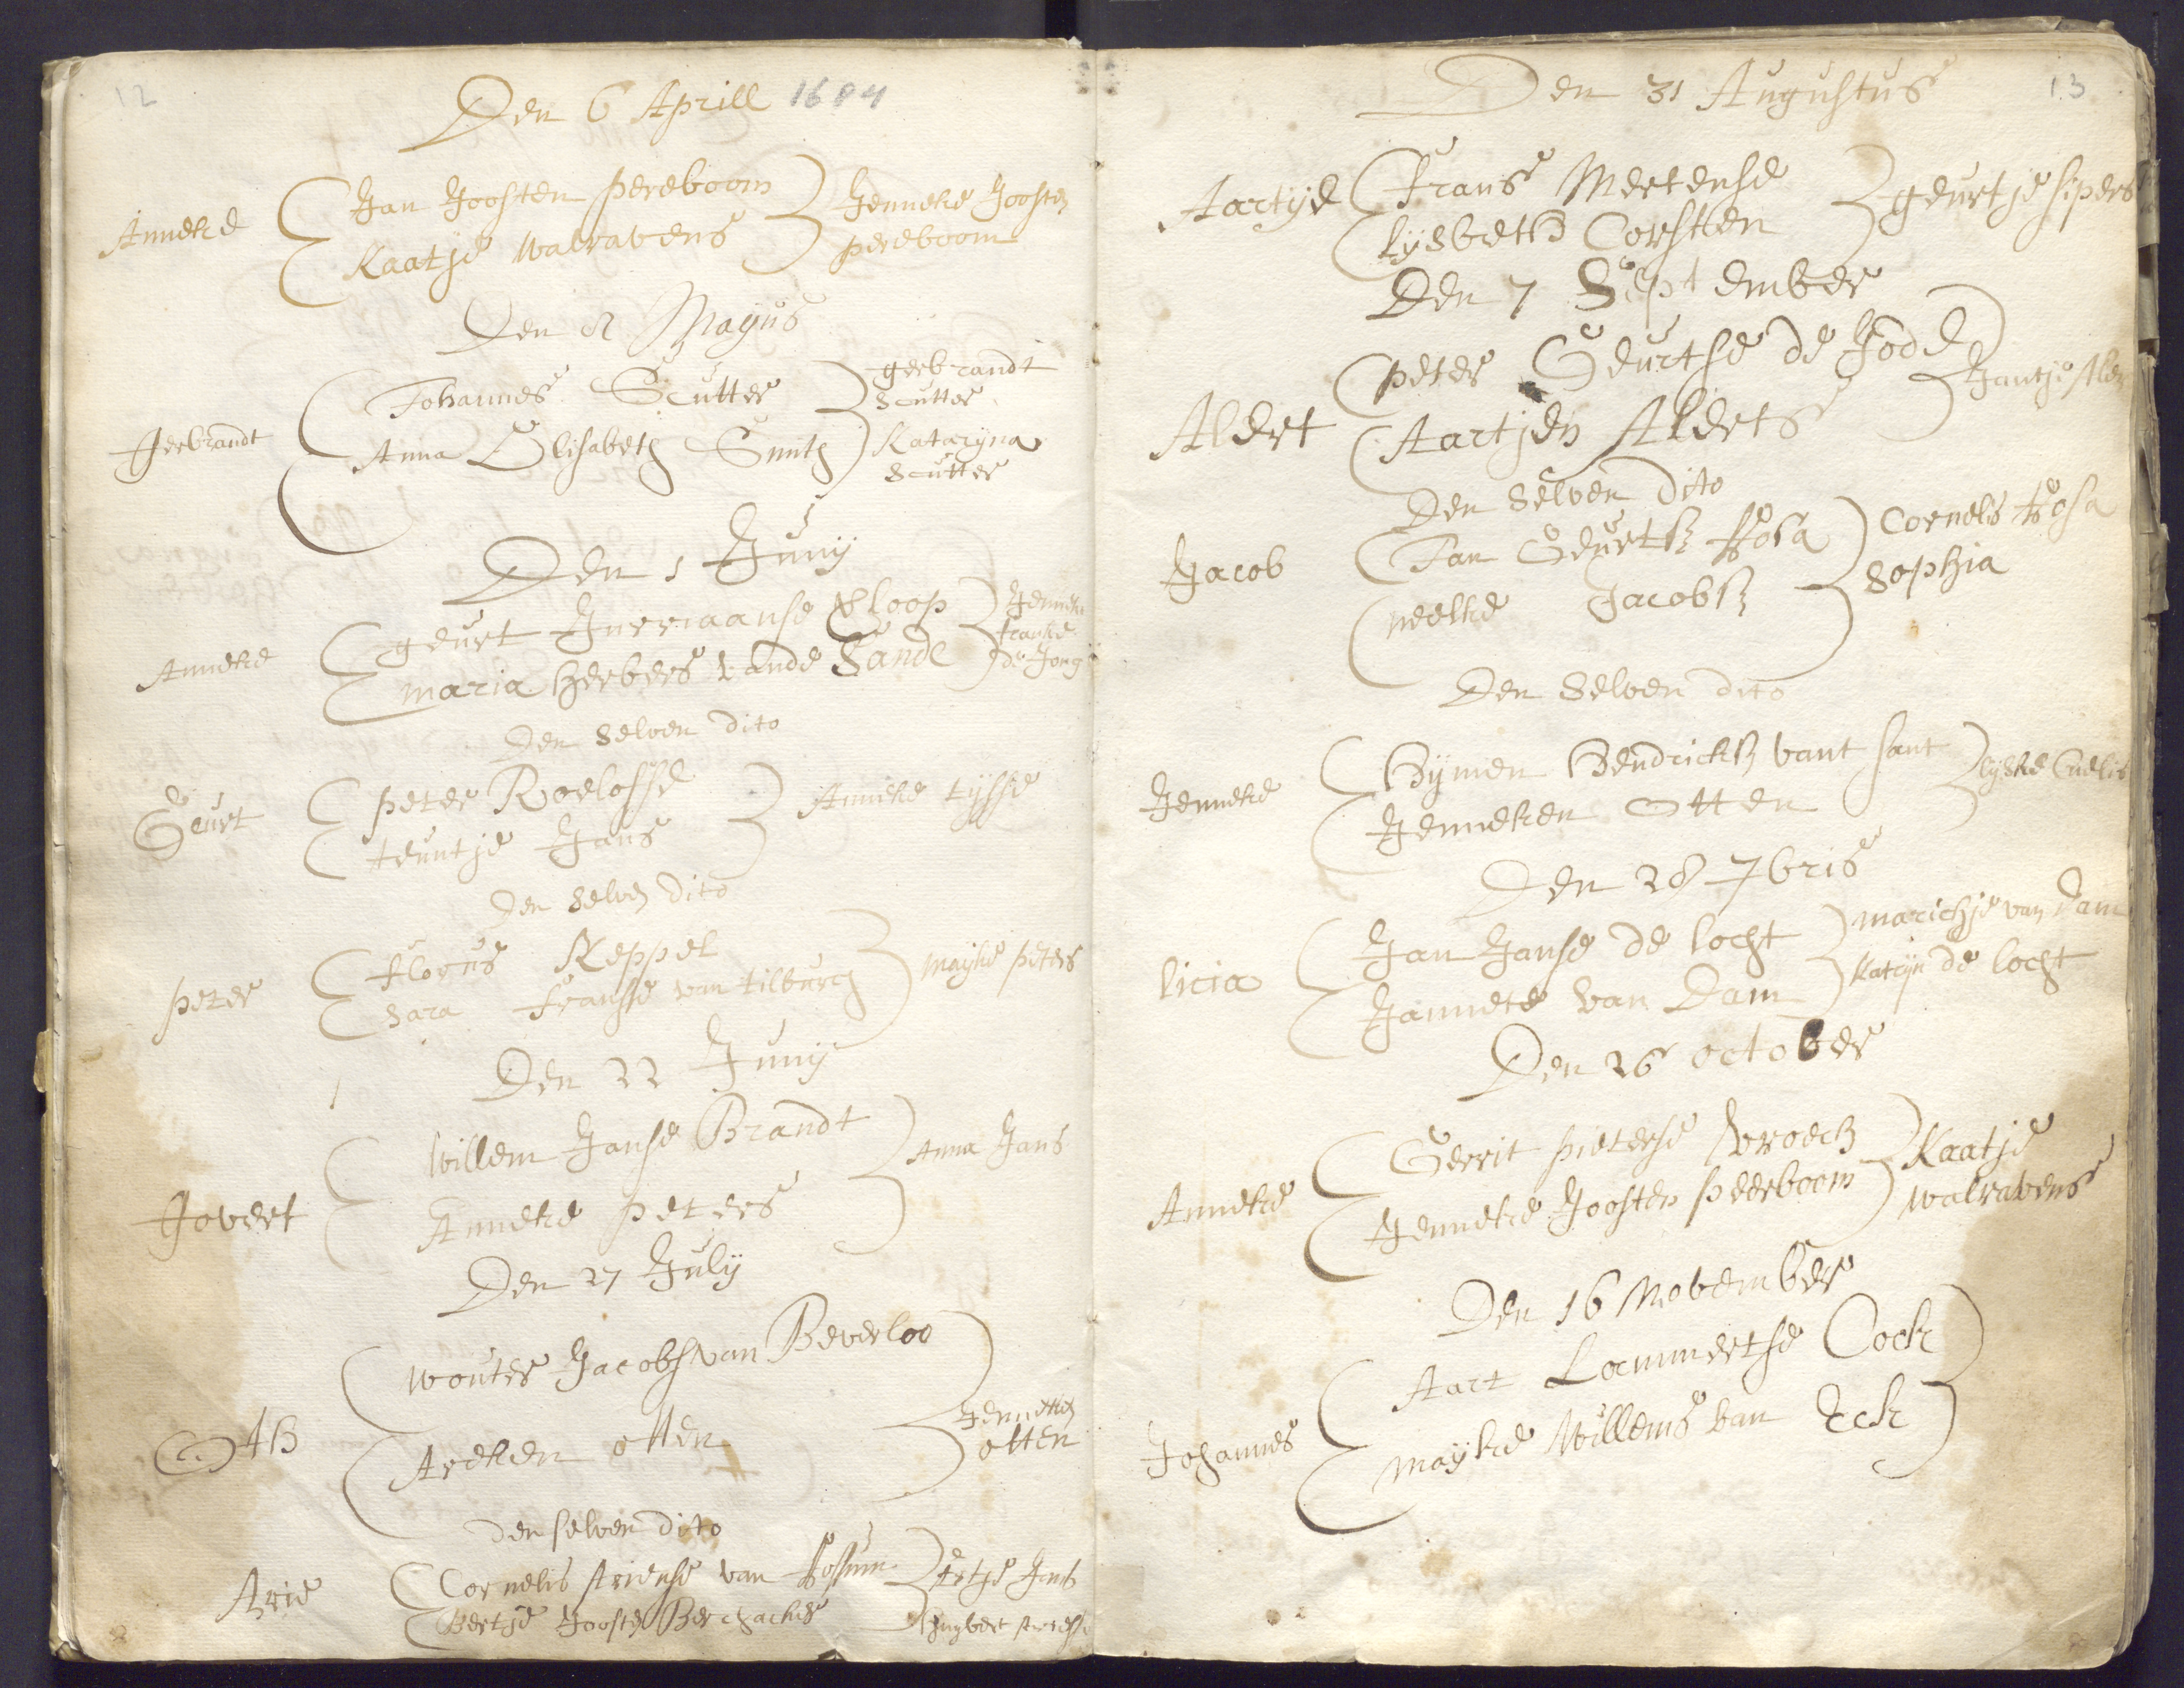 12
Den 6 Aprill 1684
Anneke
Jan Joosten pereboom
Kaatje walravens
Jenneke Joosten
pereboom
Den 8 Mayus
Gerbrandt
Johannes Scutter
Anna Elisabeth Smith
gerbrandt
Scutter
Kataryna
Scutter
Den 1 Juny
Anneke
geurt Jurriaanse Kloop
maria herbers vande Sande
Jenneke
franke
de Jong
Den selven dito
Geurt
peter Roelofse
teuntje Jans
Anneke tysse
Den selven dito
peter
florus Keppel
Sara franse van tilburch
mayke peters
Den 22 Juny
Govert
willem Janse Brandt
Anneke peters
Anna Jans
Den 27 July
Oth
wouter Jacobs van Beverloo
Areken otten
Jenneken
otten
den selven dito
Arie
Cornelis Ariense van Rossum
Bertje Joosten
Ertje Jans
Huybert Ariense
13
Den 31 Augustus
Aartje
frans Mertense
lysbeth Corsten
geurtje sipers
Den 7 September
Aldert
peter Geurtse de Jode
Aartjen Alderts
Jantje
Den Selven dito
Jacob
Jan Geurtsz Rosa
neelke Jacobsz
Cornelis Rosa
Sophia
Den Selven dito
Jenneke
Hymen Hendricksz vant sant
Jenneken Otten
lyske Cnelis
Den 28 7bris
licia
Jan Janse de locht
Jannete van Dam
marichje van Dam
Katryn de locht
Den 26 october
Anneke
Gerrit pieterse vroech
Jenneke Joosten peerboom
Kaatje
walravens
Den 16 November
Johannes
Aart Lammertse Cock
mayke Willems van Eck